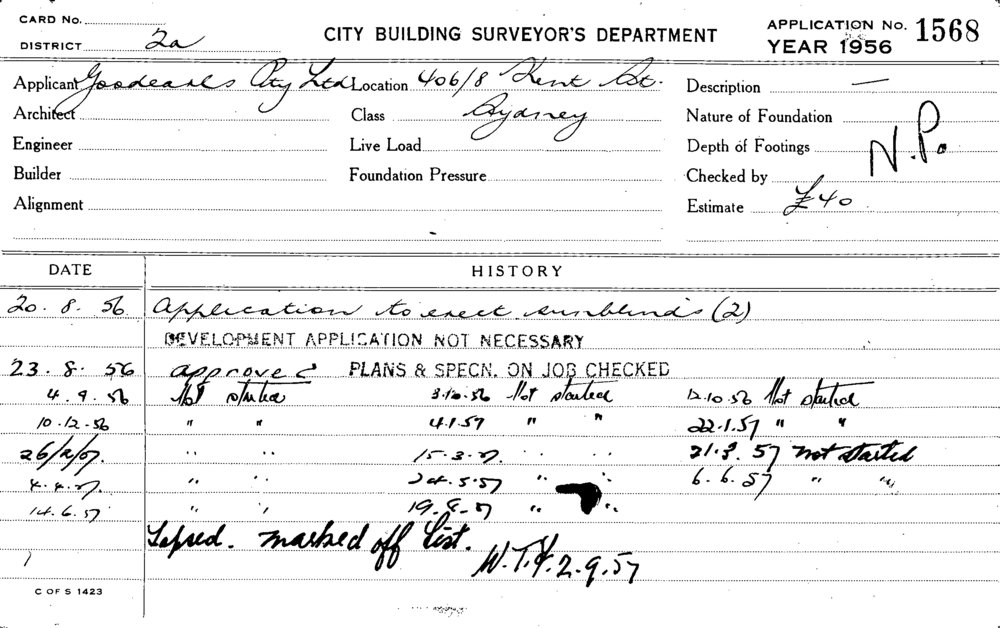 CARD No.
DISTRICT 2a
CITY BUILDING SURVEYOR'S DEPARTMENT
APPLICATION No. 1568
YEAR 1956
Applicant Goodearls Pty Ltd Location 406/8 Kent St. Description —
Architect Class Sydney Nature of Foundation
Engineer Live Load Depth of Footings N.P.
Builder Foundation Pressure Checked by
Alignment Estimate £40
DATE HISTORY
20. 8. 56 Application to erect sunblinds (2)
DEVELOPMENT APPLICATION NOT NECESSARY
23. 8. 56 approved PLANS & SPECN. ON JOB CHECKED
4. 9. 56 Not started 3.10.56 Not started 12.10.56 Not started
10.12.56 " " 4.1.57 " " 22.1.57 " "
26/2/57. " " 15.3.57. " " 21.3.57 not started
4.4.57. " " 24.5.57 " " 6.6.57 " "
14.6.57 " " 19.8.57 " "
Lapsed. marked off list.
W.T.K. 2.9.57
C OF S 1423